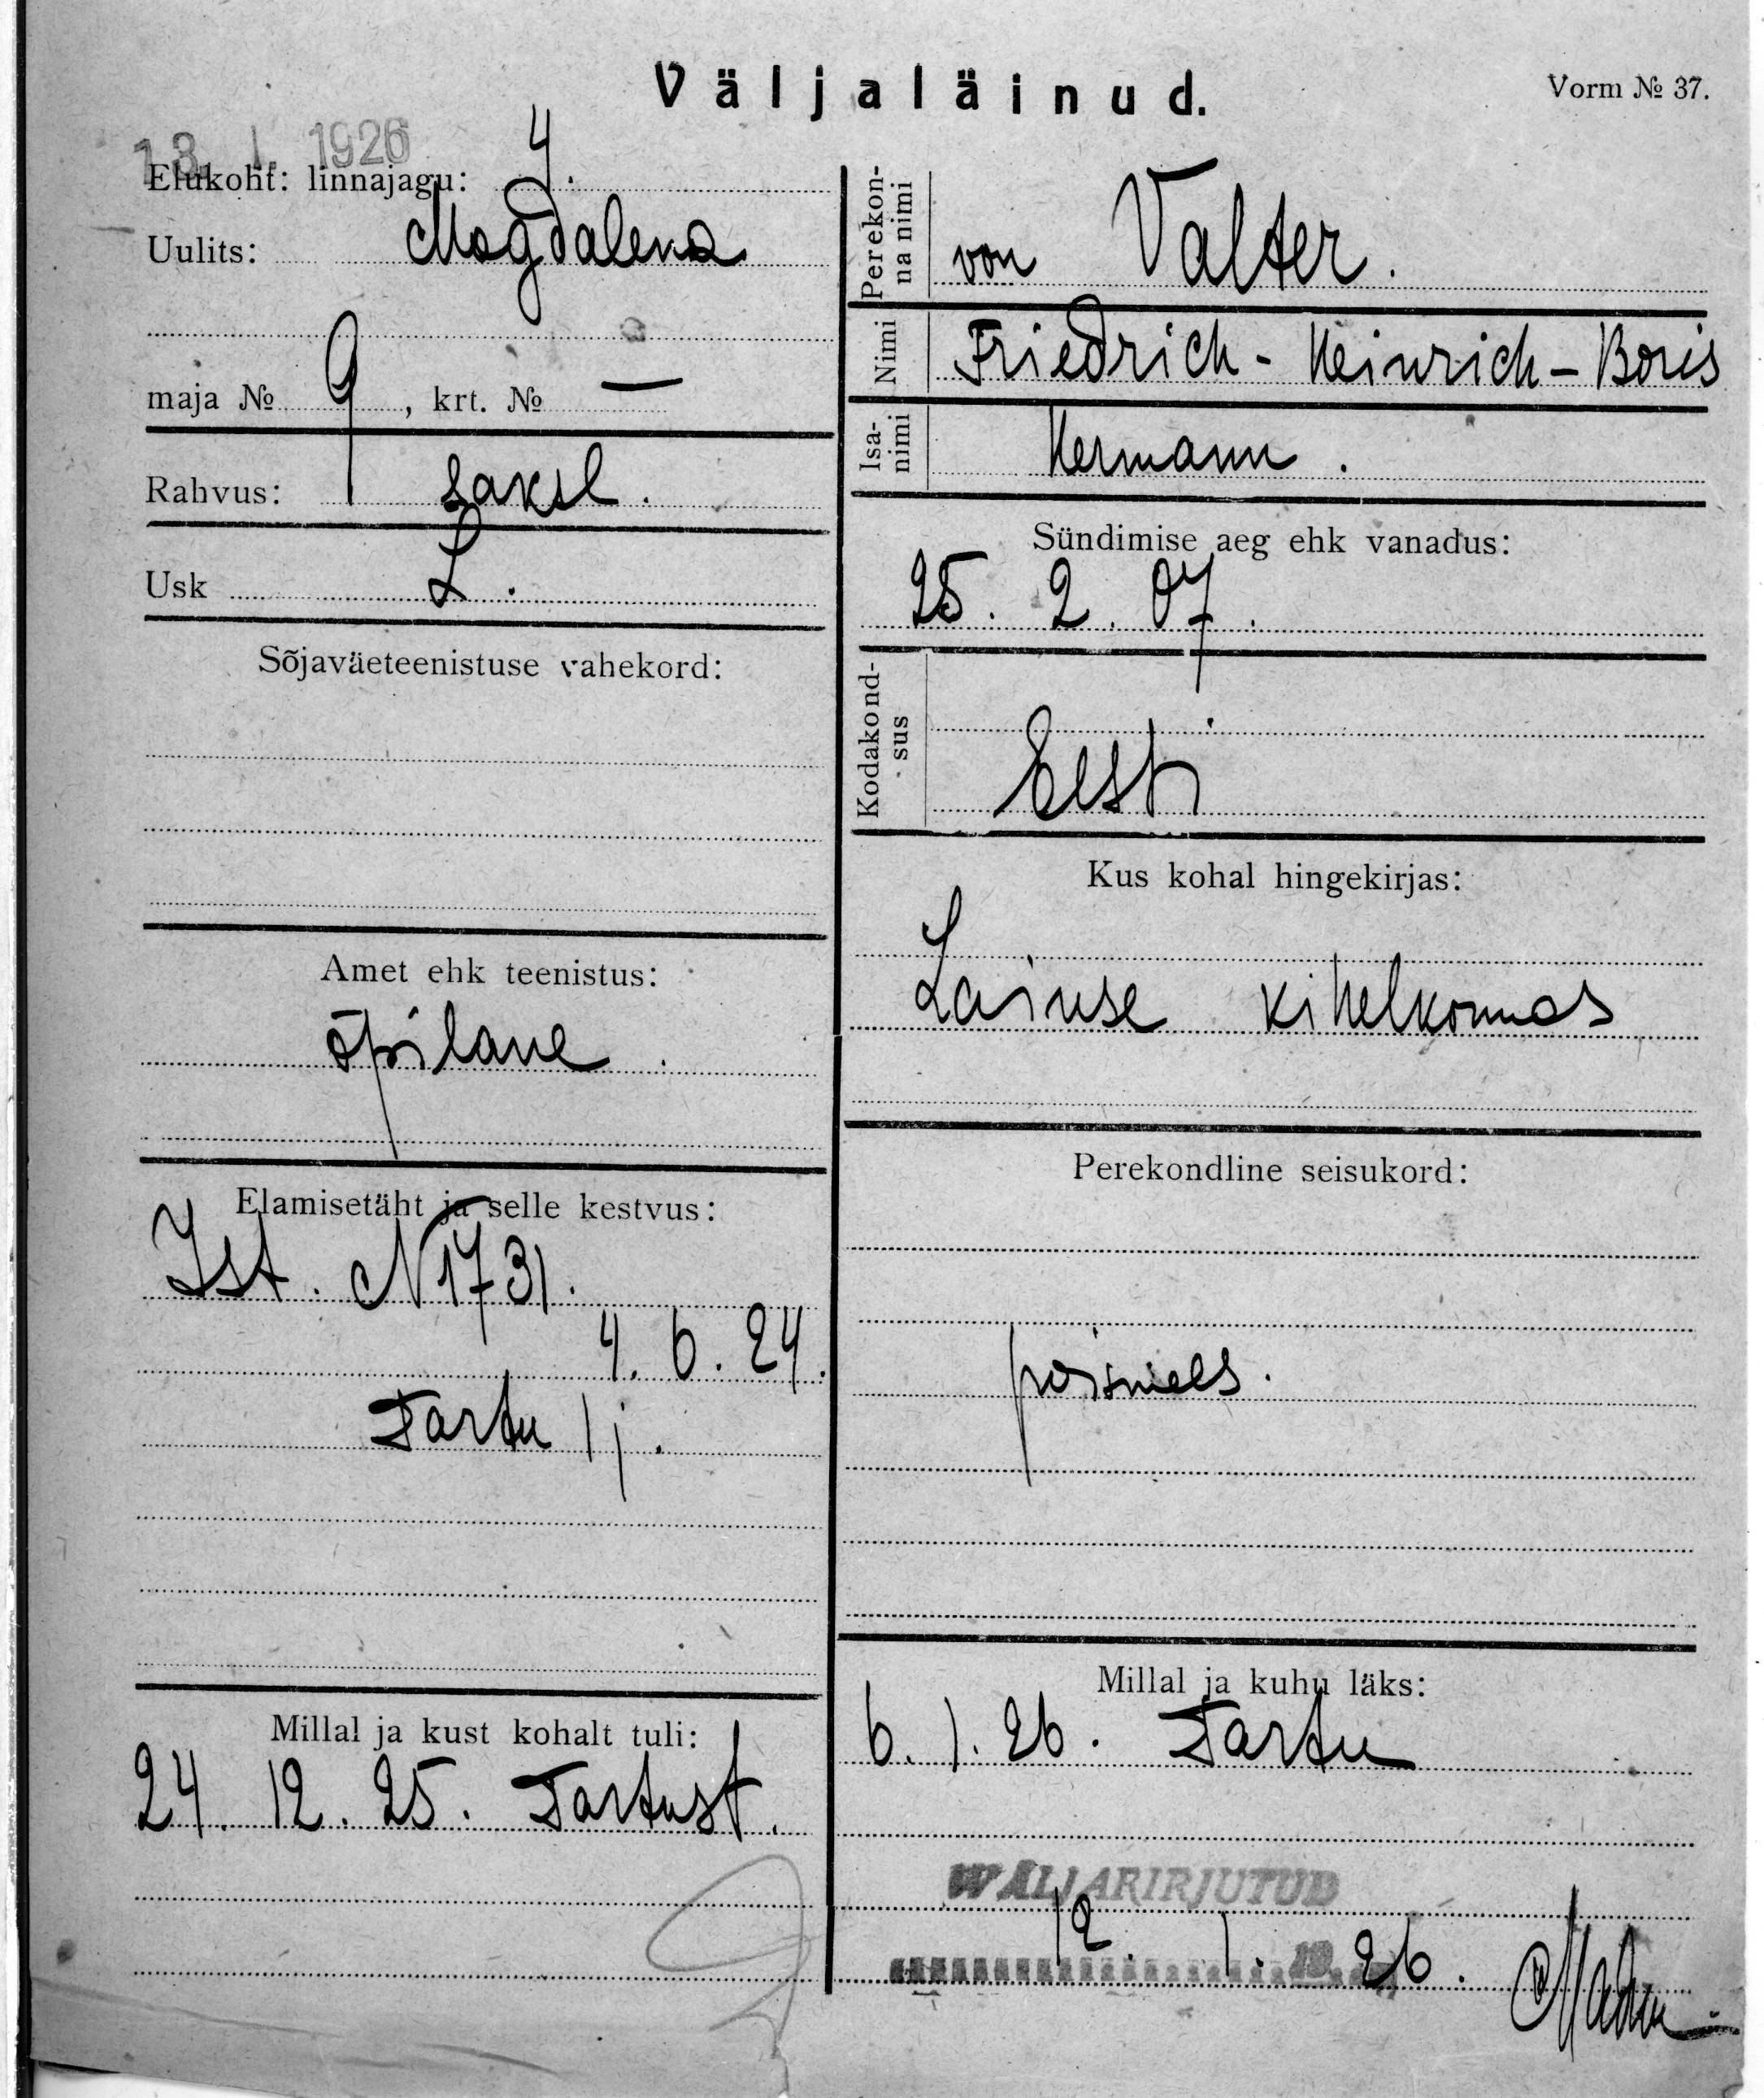 Väljaläinud.
Vorm № 37.
13. I. 1926
Elukoht: linnajagu: 4.
Uulits: Magdalena
maja № 9, krt. № —
Rahvus: saksl.
Usk L.
Sõjaväeteenistuse vahekord:
Amet ehk teenistus:
õpilane
Elamisetäht ja selle kestvus:
Ist. N 1731.
4. 6. 24.
Tartu lj.
Millal ja kust kohalt tuli:
24. 12. 25. Tartust.
Perekonna nimi
von Valter.
Nimi
Friedrich - Heinrich - Boris
Isanimi
Hermann.
Sündimise aeg ehk vanadus:
25. 2. 07.
Kodakondsus
Eesti
Kus kohal hingekirjas:
Laiuse kihelkonnas
Perekondline seisukord:
poismees.
Millal ja kuhu läks:
6. 1. 26. Tartu
WÄLJAKIRJUTUD
12. 1. 19 26.